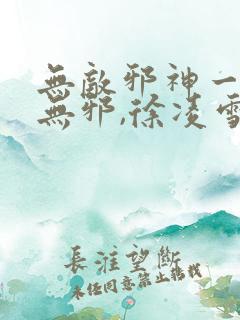 無敵邪神一
無邪,徐凌雪
長淮望斷
未任同意禁止轉載